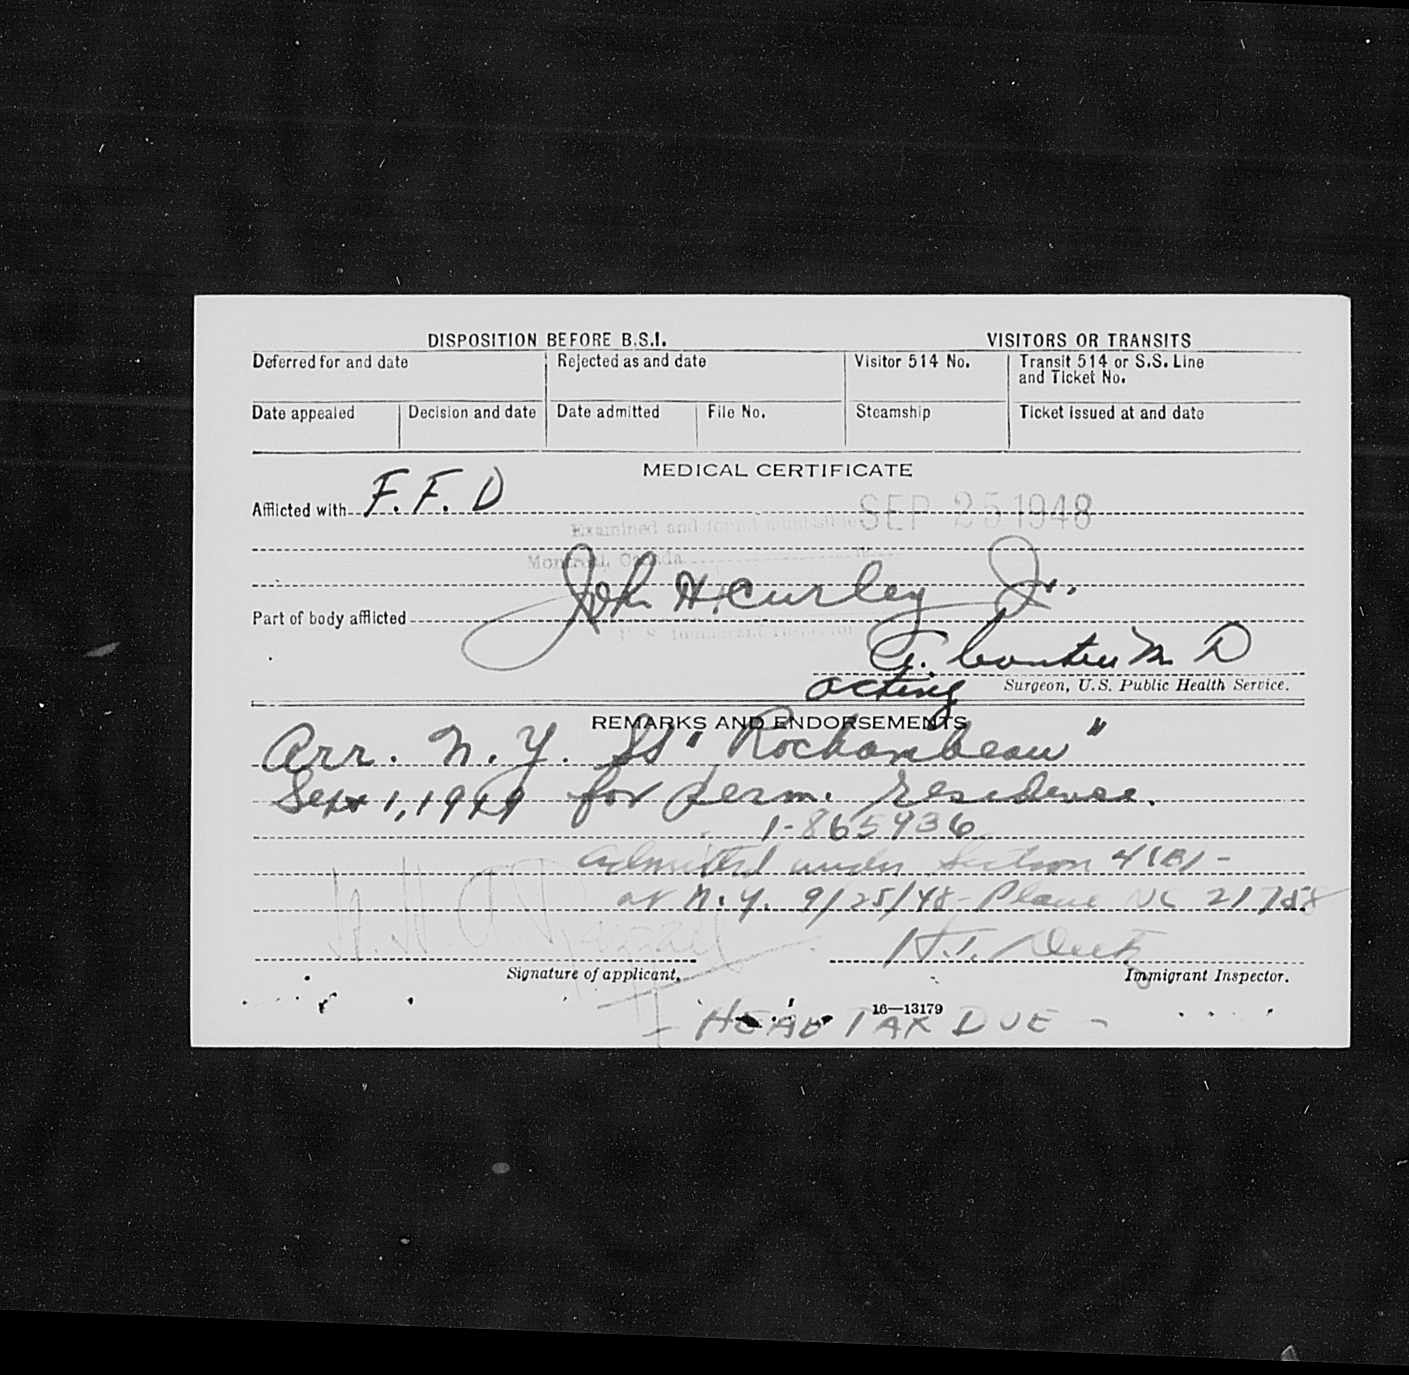 DISPOSITION BEFORE B.S.I. VISITORS OR TRANSITS
Deferred for and date Rejected as and date Visitor 514 No. Transit 514 or S.S. Line and Ticket No.
Date appealed Decision and date Date admitted File No. Steamship Ticket issued at and date
MEDICAL CERTIFICATE
Afflicted with F. F. D
SEP 25 1948
Examined and found
Montreal, Canada
John H. Curley Jr.
Part of body afflicted
U. S. Immigrant Inspector
G. M D
acting Surgeon, U.S. Public Health Service.
REMARKS AND ENDORSEMENTS
Arr. N.Y. SS "Rochambeau"
Sept 1, 1929 for perm. residence.
1-865936
Admitted under Section 4(B) -
at N.Y. 9/25/48 - Plane NC 21758
H.J.
Signature of applicant. Immigrant Inspector.
16—13179
- HEAD TAX DUE -